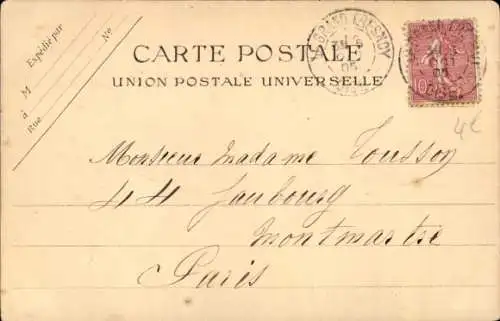 Expédié par
M
à
Rue
No
CARTE POSTALE
UNION POSTALE UNIVERSELLE
GRAND FRESNOY
05
10
4€
Monsieur Madame Tousson
44 Faubourg
Montmartre
Paris